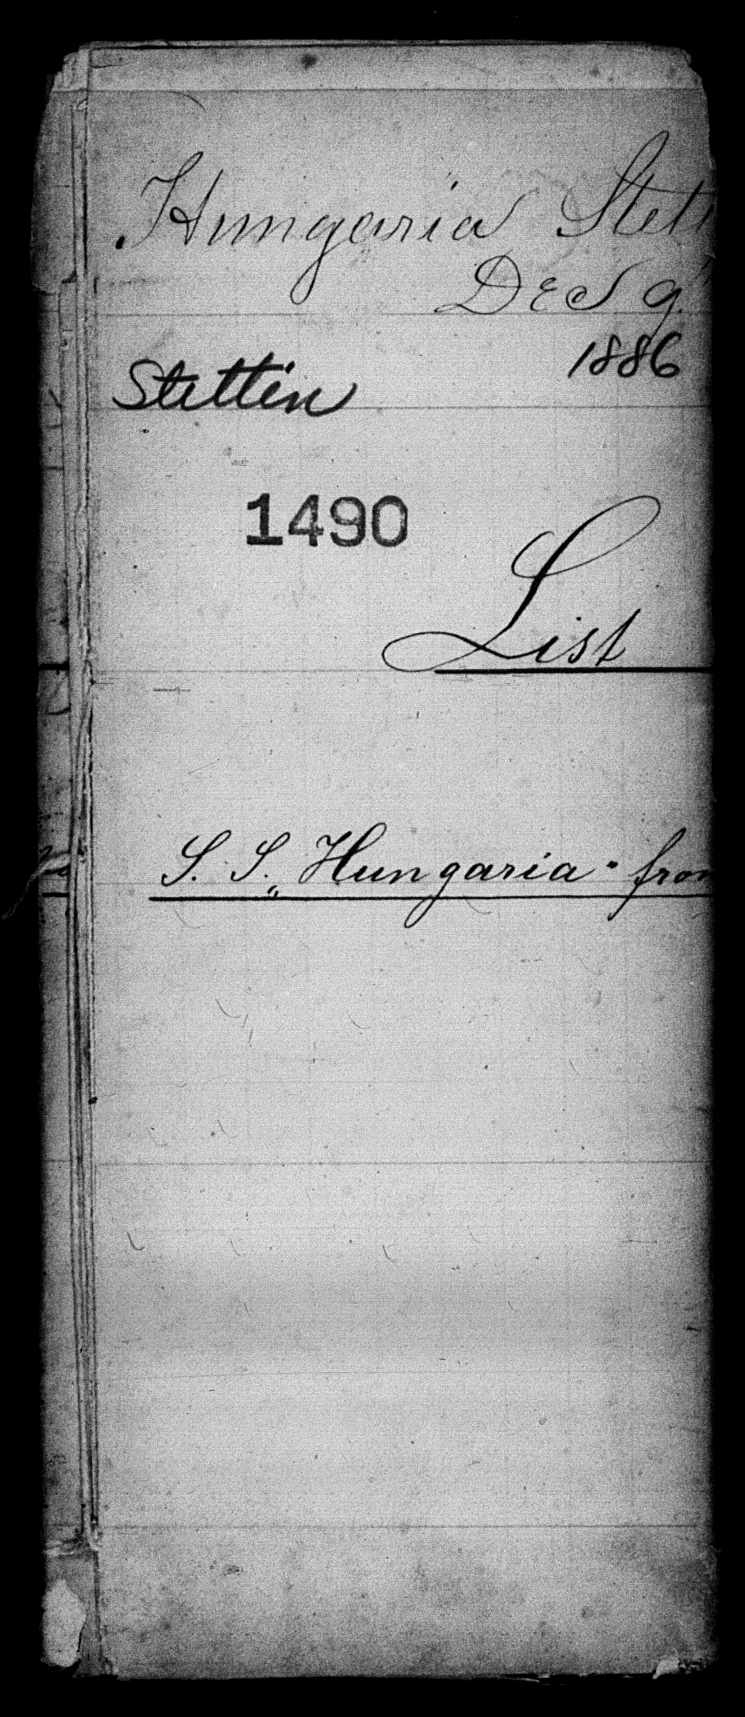 Hungaria Stett
Dec 9
1886
Stettin
1490
List
S. S. „Hungaria“ from